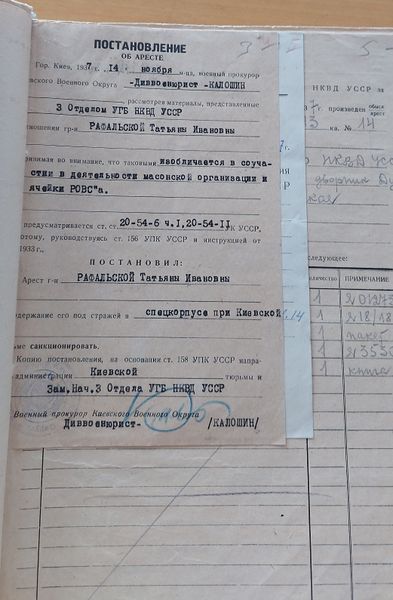 ПОСТАНОВЛЕНИЕ
ОБ АРЕСТЕ
Гор. Киев, 1937 г. 14 ноября м-ца, военный прокурор
вского Военного Округа -Диввоенюрист -КАЛОШИН
рассмотрев материалы, представленные
3 Отделом УГБ НКВД УССР
тношении гр-н РАФАЛЬСКОЙ Татьяны Ивановны
ринимая во внимание, что таковым изобличается в соуча-
стии в деятельности масонской организации и
ячейки РОВС"а.
предусматривается ст. ст. 20-54-6 ч.I,20-54-II УК УССР,
отому, руководствуясь ст. 156 УПК УССР и инструкцией от
1933 г.,
ПОСТАНОВИЛ:
Арест г-н РАФАЛЬСКОЙ Татьяны Ивановны
одержание его под стражей в спецкорпусе при Киевской
ьме санкционировать.
Копию постановления, на основании ст. 158 УПК УССР напра-
администрации Киевской тюрьмы и
Зам.Нач.3 Отдела УГБ НКВД УССР
Военный прокурор Киевского Военного Округа
Диввоенюрист- /КАЛОШИН/
НКВД УССР за
7 г. произведен обыск
арест
3 кв. № 14
НКВД УСС
дворник
следующее:
количество ПРИМЕЧАНИЕ
1
1
1 пакет
1
1 книга